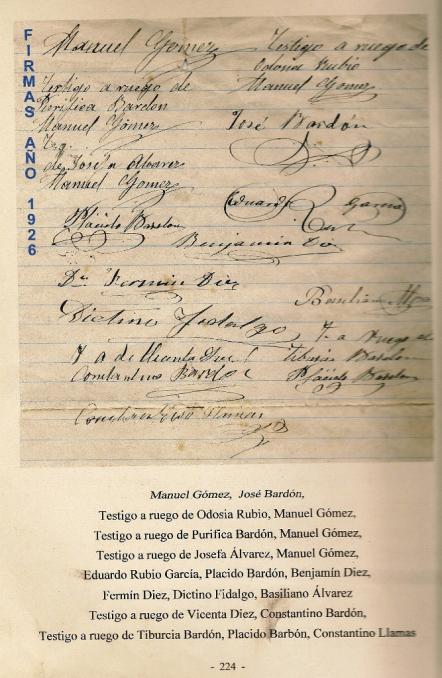 FIRMAS AÑO 1926
Manuel Gomez
Testigo a ruego de
Odosia Rubio
Manuel Gomez
Testigo a ruego de
Purifica Bardon
Manuel Gómez
José Bardón
de Josefa Alvarez
Manuel Gomez
Eduardo R. García
Plácido Bardon
Benjamin Diez
Fermin Diez
Basiliano
Dictino Fidalgo
T. a ruego de
T a de Vicenta Diez
Tiburcia Bardon
Constantino Bardon
Plácido Bardon
Constantino Llamas
Manuel Gómez, José Bardón,
Testigo a ruego de Odosia Rubio, Manuel Gómez,
Testigo a ruego de Purifica Bardón, Manuel Gómez,
Testigo a ruego de Josefa Álvarez, Manuel Gómez,
Eduardo Rubio García, Placido Bardón, Benjamín Diez,
Fermín Diez, Dictino Fidalgo, Basiliano Álvarez
Testigo a ruego de Vicenta Diez, Constantino Bardón,
Testigo a ruego de Tiburcia Bardón, Placido Barbón, Constantino Llamas
- 224 -